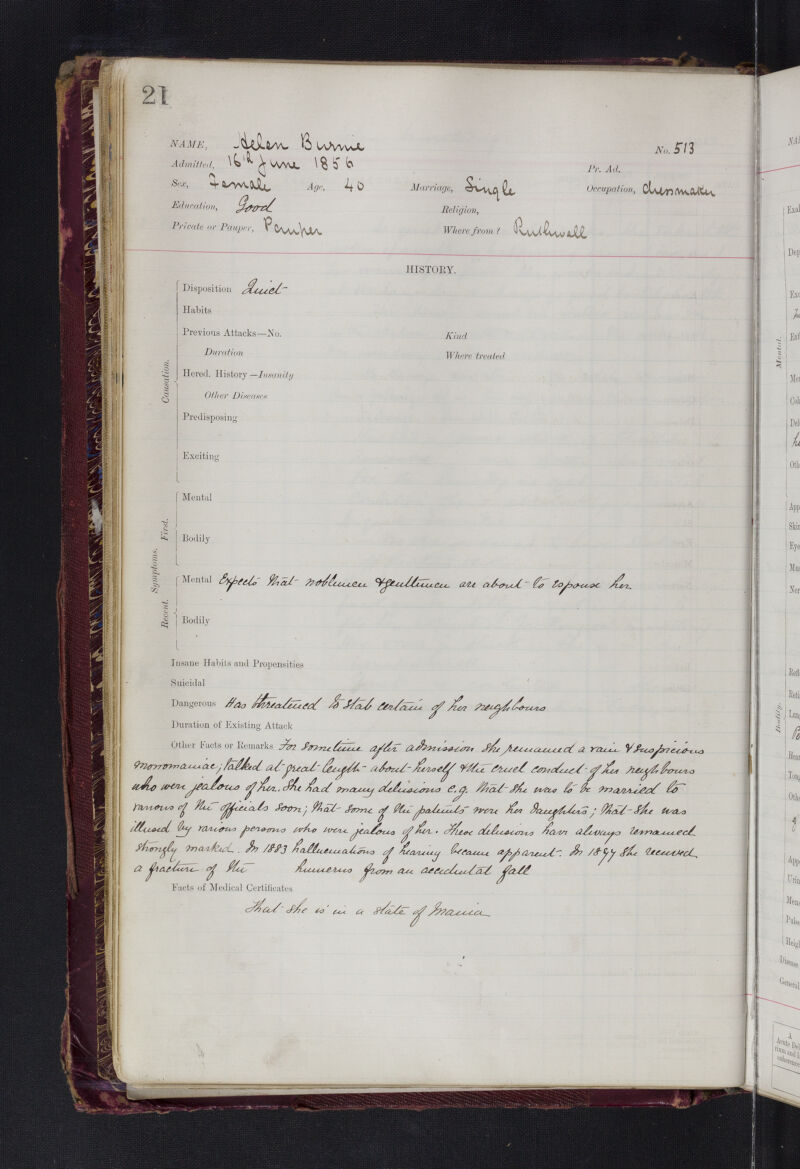 21
NAME, Helen Burnie No. 513
Admitted, 16th June 1856 Pr. Ad.
Sex, Female Age, 40 Marriage, Single Occupation, dressmaker
Education, Good Religion,
Private or Pauper, Pauper Where from? Ruthwell
HISTORY.
Causation.
Disposition Quiet
Habits
Previous Attacks—No. Kind
Duration Where treated
Hered. History—Insanity
Other Diseases
Predisposing
Exciting
Symptoms.
First.
Mental
Bodily
Recent.
Mental Expects that noblemen & gentlemen are about to espouse her
Bodily
Insane Habits and Propensities
Suicidal
Dangerous Has threatened to stab certain of her neighbours
Duration of Existing Attack
Other Facts or Remarks For sometime after admission she remained a vain & suspicious
monomaniac; talked at great length about herself & the cruel conduct of her neighbours
who were jealous of her. She had many delusions e.g. that she was to be married to
various of the officials soon; that some of the patients were her daughters; that she was
illused by various persons who were jealous of her. These delusions have always remained
strongly marked. In 1883 hallucinations of hearing became apparent. In 1897 she received
a fracture of the humerus from an accidental fall
Facts of Medical Certificates
That she is in a state of Mania
Mental.
Bodily.